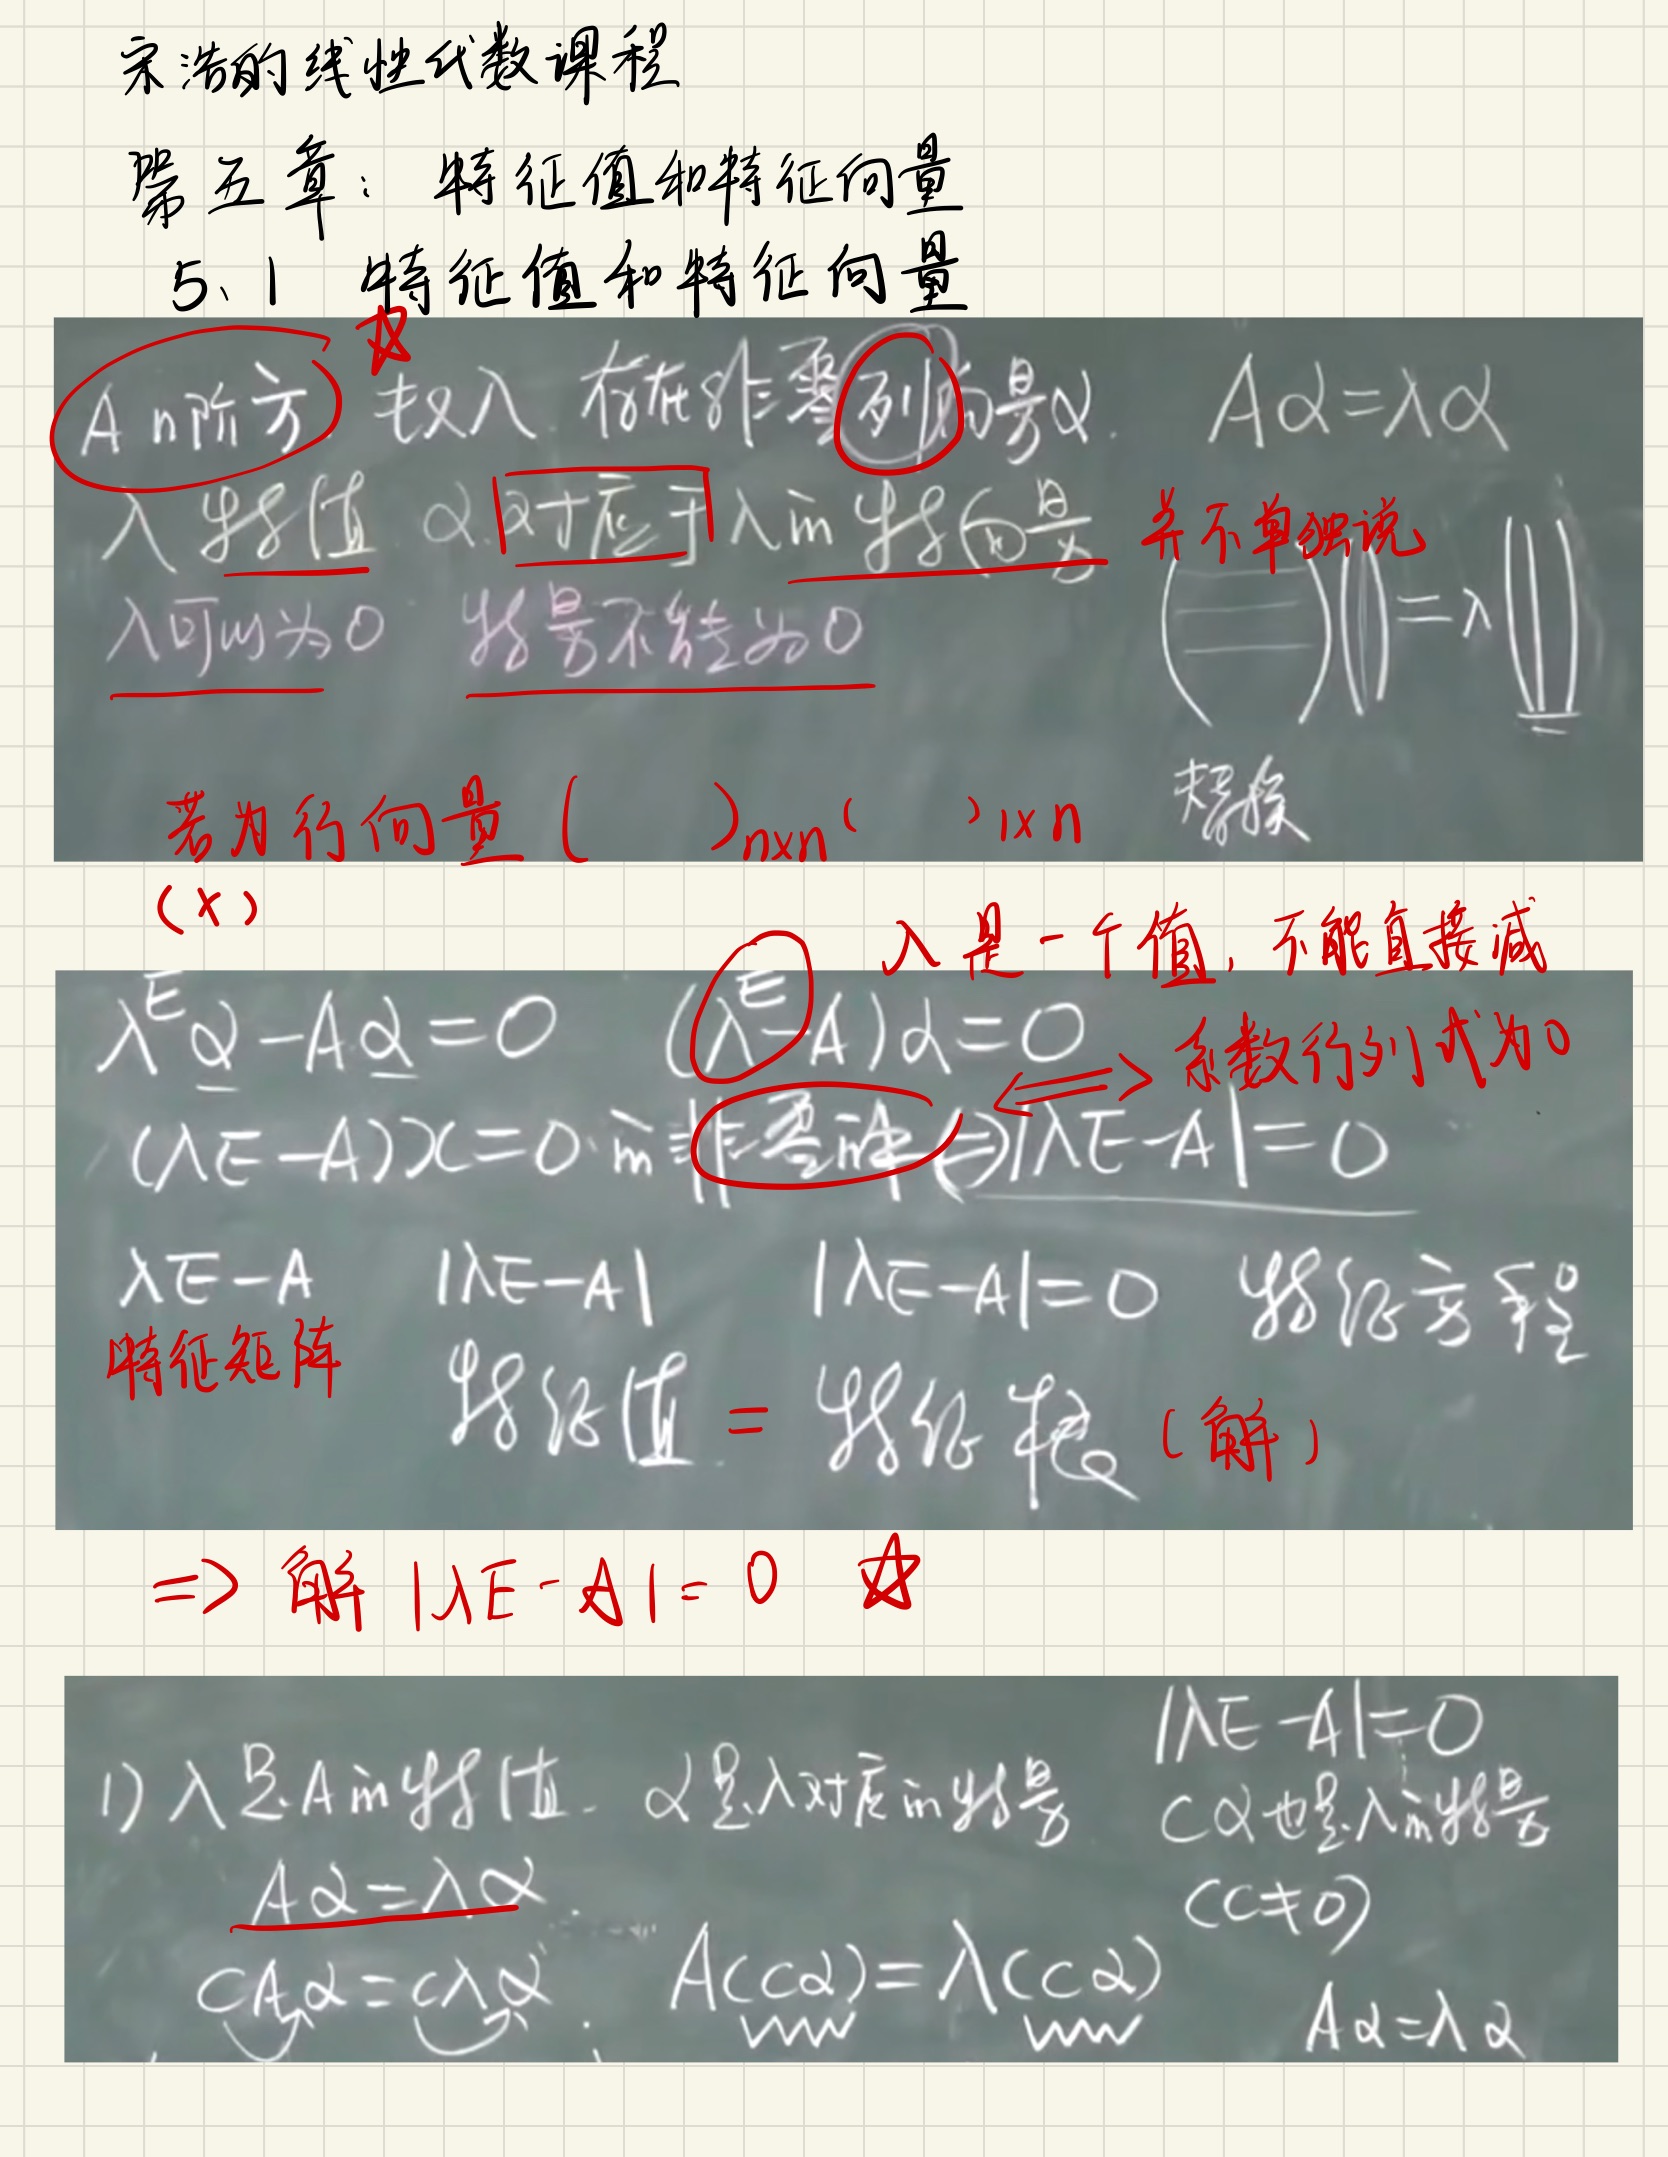 宋浩的线性代数课程
第五章：特征值和特征向量
5.1 特征值和特征向量
A n阶方 数λ 存在非零列向量α. Aα=λα
λ 特征值 α 对应于λ的特征向量 并不单独说
λ可以为0 特量不能为0
( )( )=λ( )
替换
若为行向量 ( )n×n ( )1×n
(×)
λ是一个值，不能直接减
λEα-Aα=0 (λE-A)α=0
系数行列式为0
(λE-A)x=0的非零解⇔|λE-A|=0
λE-A |λE-A| |λE-A|=0 特征方程
特征矩阵
特征值 = 特征根 (解)
⇒ 解 |λE-A|=0 ☆
|λE-A|=0
1) λ是A的特值. α是λ对应的特量
cα也是λ的特量
Aα=λα
(c≠0)
cAα=cλα A(cα)=λ(cα)
Aα=λα